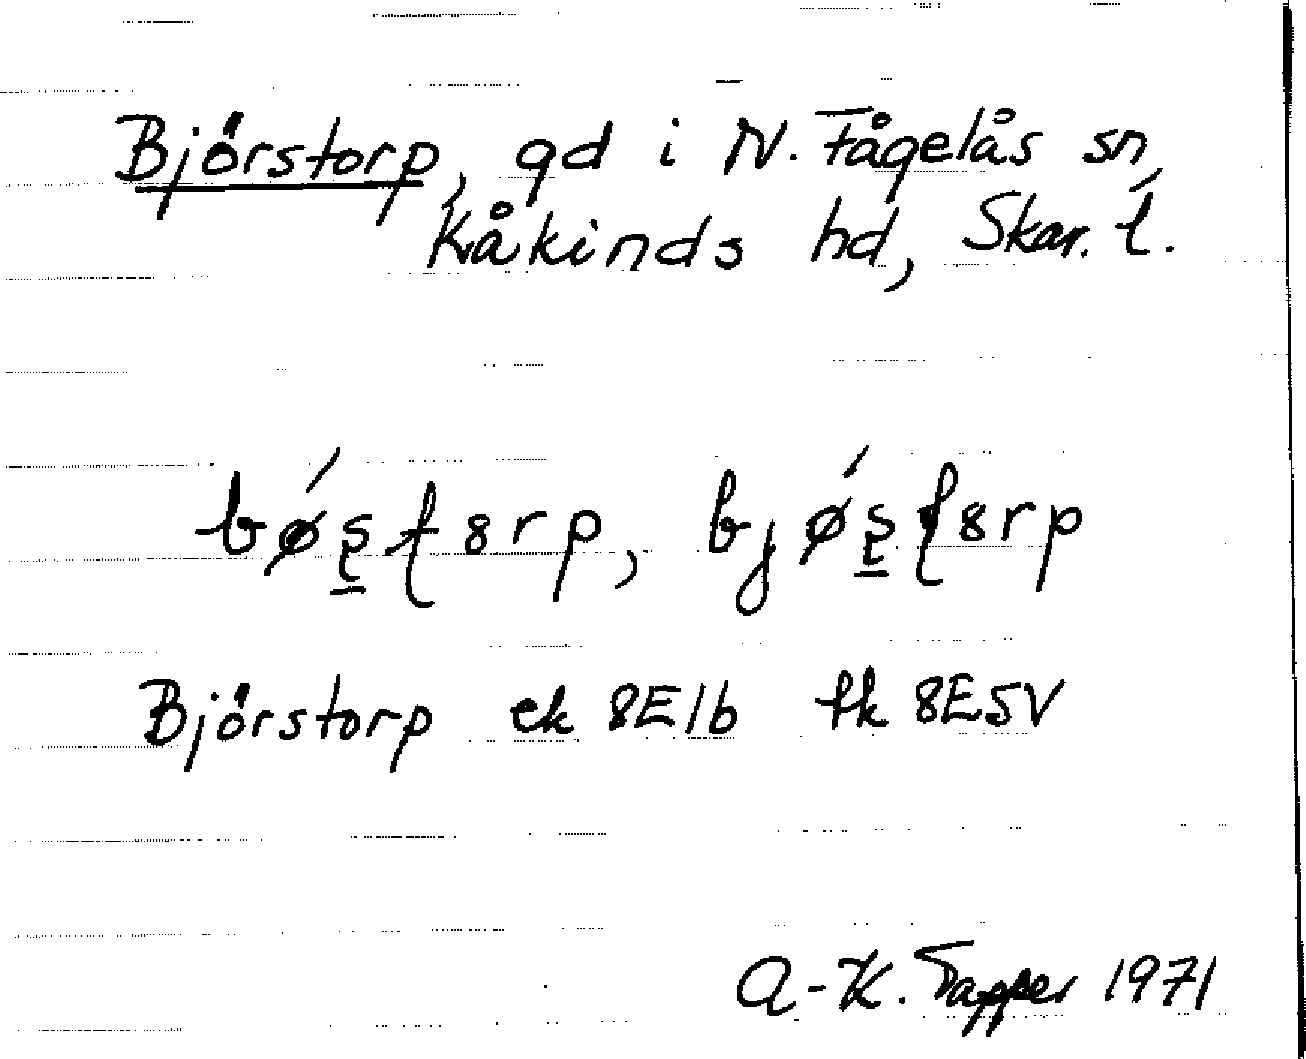 Björstorp, gd i N. Fågelås sn,
Kåkinds hd, Skar. l.
bǿs̠ʈ8rp, bjǿs̠ʈ8rp
Björstorp ek 8E1b fk 8E5V
A-K. Tapper 1971